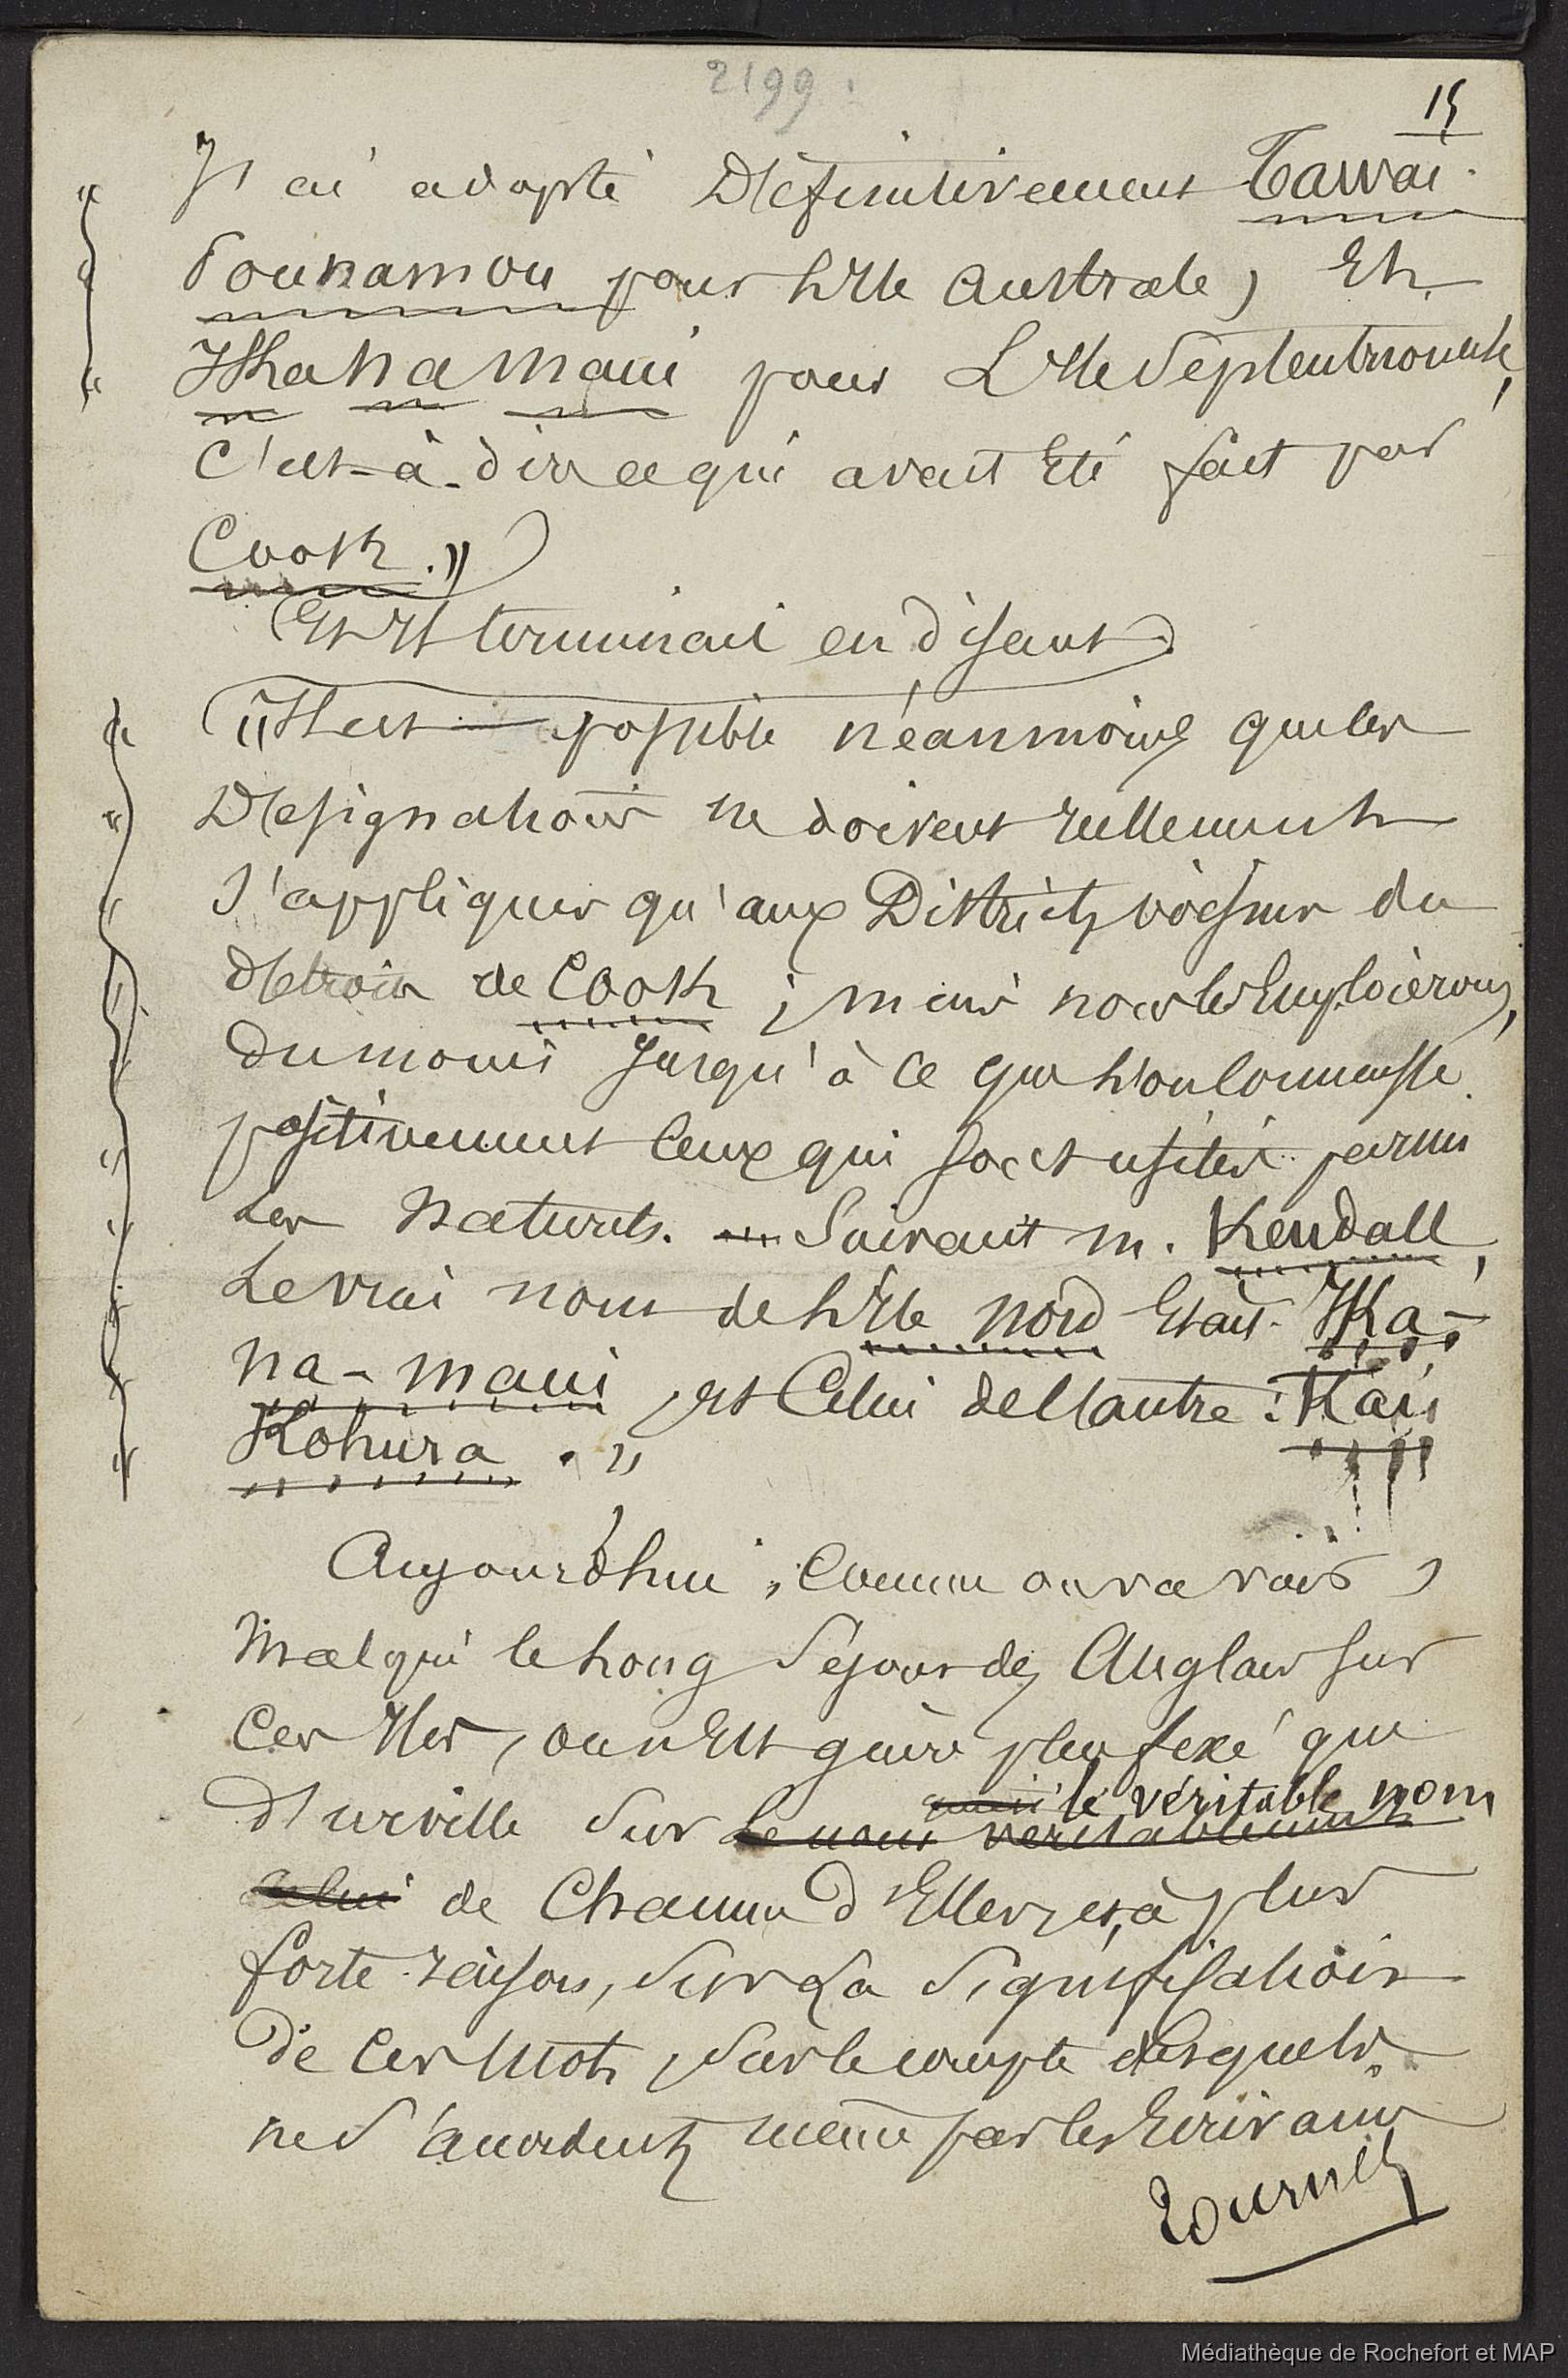 2199.
15
J'ai adopté Définitivement Tawai-
Pounamou pour l'Ile Australe, Et
Ika na Maui pour L'Ile Septentrionale,
C'est-à-dire ce qui avait Eté fait par
Cook.")
(Et Il terminait en disant)
("Il est possible néanmoins que les
Désignations ne doivent réellement
S'appliquer qu'aux Districts voisins du
détroit de Cook ; mais nous les Emploierons,
du moins Jusqu'à ce que l'on connaisse
positivement Ceux qui sont usités parmi
Les Naturels. — Suivant M. Kendall,
Le vrai nom de l'Ile Nord Etait Ika-
na-maui, et Celui de l'autre : Kai
Kohura."
Aujourd'hui, Comme on va voir,
Malgré le Long Séjour des Anglais sur
Ces Iles, on n'Est guère plus fixé que
d'Urville Sur le véritable nom
Le nom véritablement
celui de Chacune d'Elles, et, à plus
forte raison, Sur La Signification
de Ces Mots, Sur le compte desquels
ne S'accordent même pas les Ecrivains
Tournez
Médiathèque de Rochefort et MAP